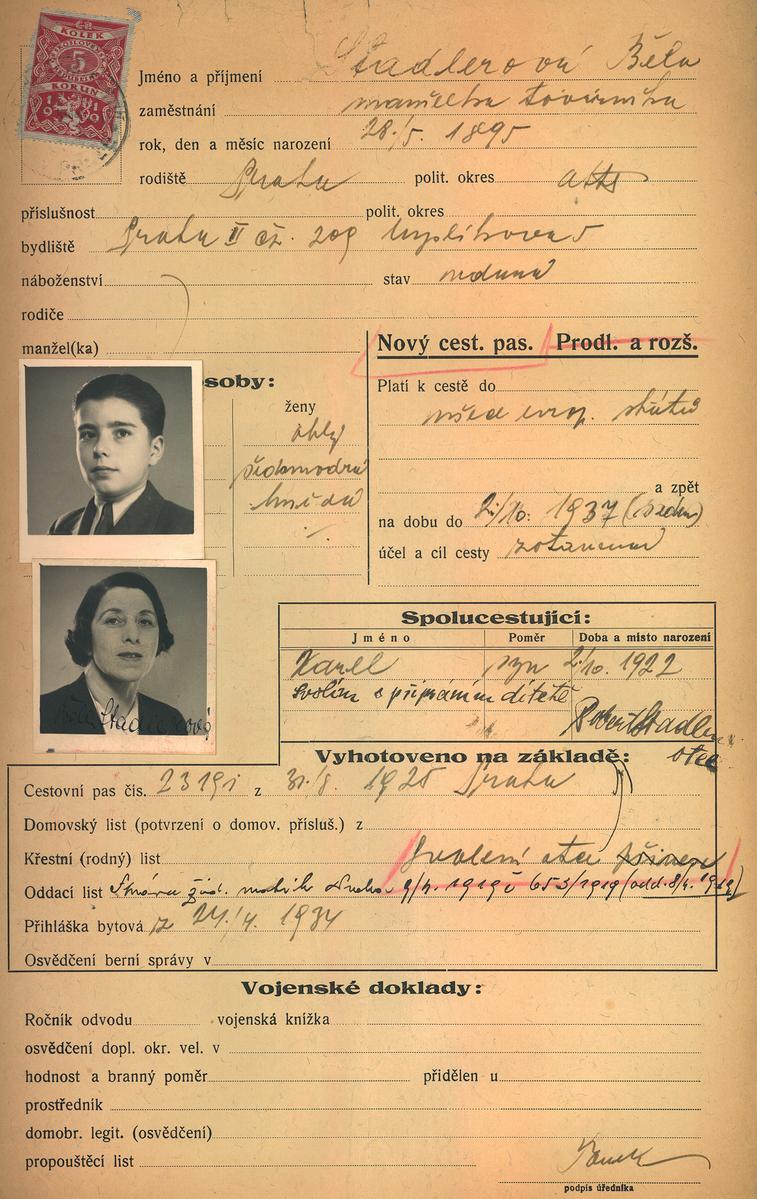 KOLEK
5
KORUN
Jméno a příjmení Stadlerová Běla
zaměstnání manželka továrníka
rok, den a měsíc narození 28./5. 1895
rodiště Praha polit. okres
příslušnost polit. okres
bydliště Praha II čž. 209
náboženství stav vdaná
rodiče
manžel(ka)
Nový cest. pas. Prodl. a rozš.
soby:
ženy
Platí k cestě do
všed evrop. států
oblý
šedomodré
hnědé
a zpět
na dobu do 2./10. 1937
účel a cíl cesty zotavení
Spolucestující:
Jméno Poměr Doba a místo narození
Karel syn 2./10. 1922
svolím s připsáním dítěte
Robert Stadler
otec
Běla Stadlerová
Vyhotoveno na základě:
Cestovní pas čís. 23191 z 31./8. 1925 Praha
Domovský list (potvrzení o domov. přísluš.) z
Křestní (rodný) list Svolení otce
Oddací list žid. matrik 9/4. 1919 č 653/1919 (odd. 8/4. 1919)
Přihláška bytová z 24./4. 1934
Osvědčení berní správy v
Vojenské doklady:
Ročník odvodu vojenská knížka
osvědčení dopl. okr. vel. v
hodnost a branný poměr přidělen u
prostředník
domobr. legit. (osvědčení)
propouštěcí list
podpis úředníka